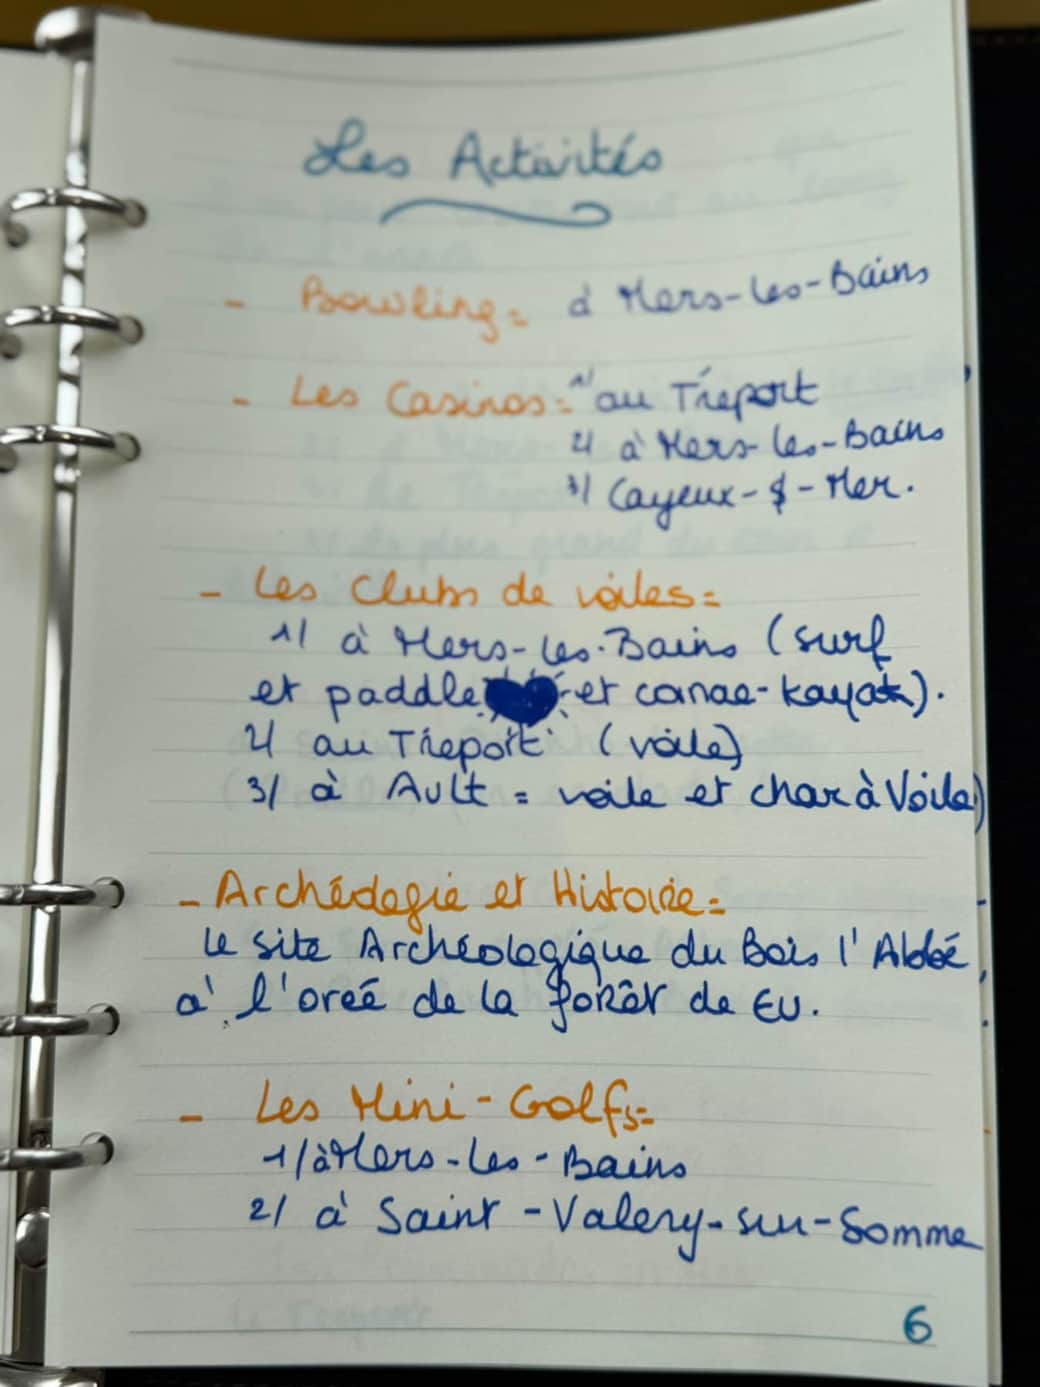 Les Activités
- Bowling= à Mers-les-Bains
- Les Casinos= 1/ au Tréport
2/ à Mers-les-Bains
3/ Cayeux-s-Mer.
- Les Clubs de voiles=
1/ à Mers-les-Bains (surf
et paddle et canoe-kayak).
2/ au Tréport (voile)
3/ à Ault = voile et char à Voile)
- Archéologie et Histoire=
le site Archéologique du Bois l'Abbé,
à l'oreé de la forêt de EU.
- Les Mini-Golfs=
1/ à Mers-les-Bains
2/ à Saint-Valery-sur-Somme
6